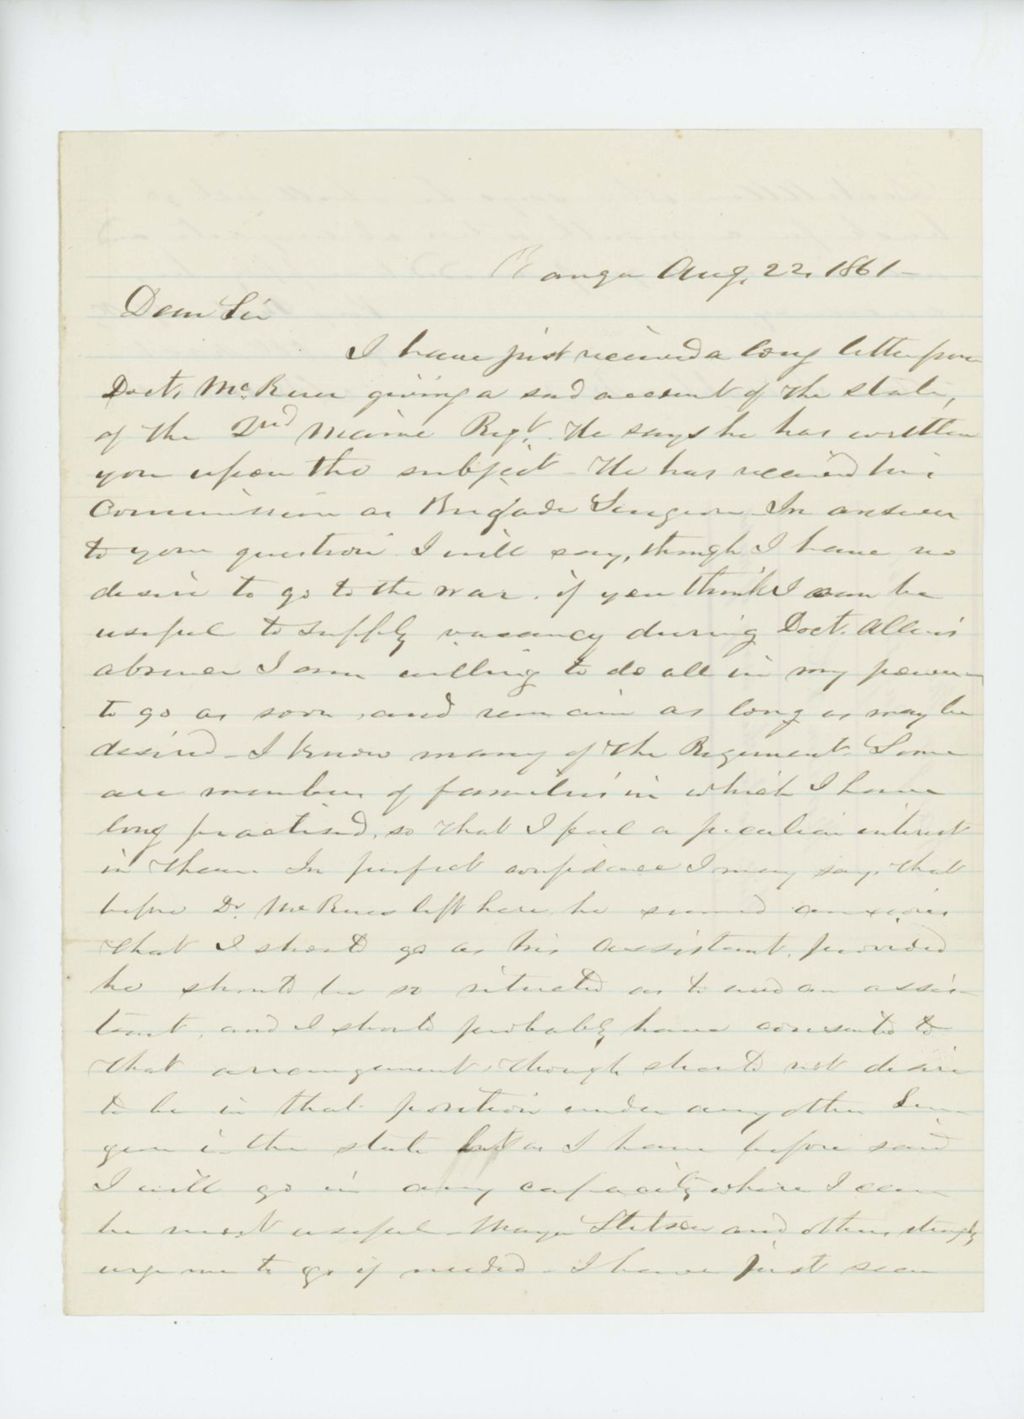 Bangor Aug. 22, 1861-
Dear Sir
I have just received a long letter from
Doct. McRuer giving a sad account of the state,
of the 2nd Maine Regt. He says he has written
you upon the subject - He has received his
Commission as Brigade Surgeon In answer
to your question I will say, though I have no
desire to go to the war. if you think I can be
useful to supply vacancy during Doct. Allen's
absence I am willing to do all in my power
to go as soon, and remain as long as may be
desired - I know many of the Regiment. Some
are members of families in which I have
long practised, so that I feel a peculiar interest
in them In perfect confidence I may say, that
before Dr McRuer left here he seemed anxious
that I should go as his assistant, provided
he should be so situated as to need an assis-
tant, and I should probably have consented to
that arrangement, though should not desire
to be in that position under any other Sur-
geon in the state but as I have before said
I will go in any capacity where I can
be most useful - Mayor Stetson and others strongly
urge me to go if needed - I have just seen